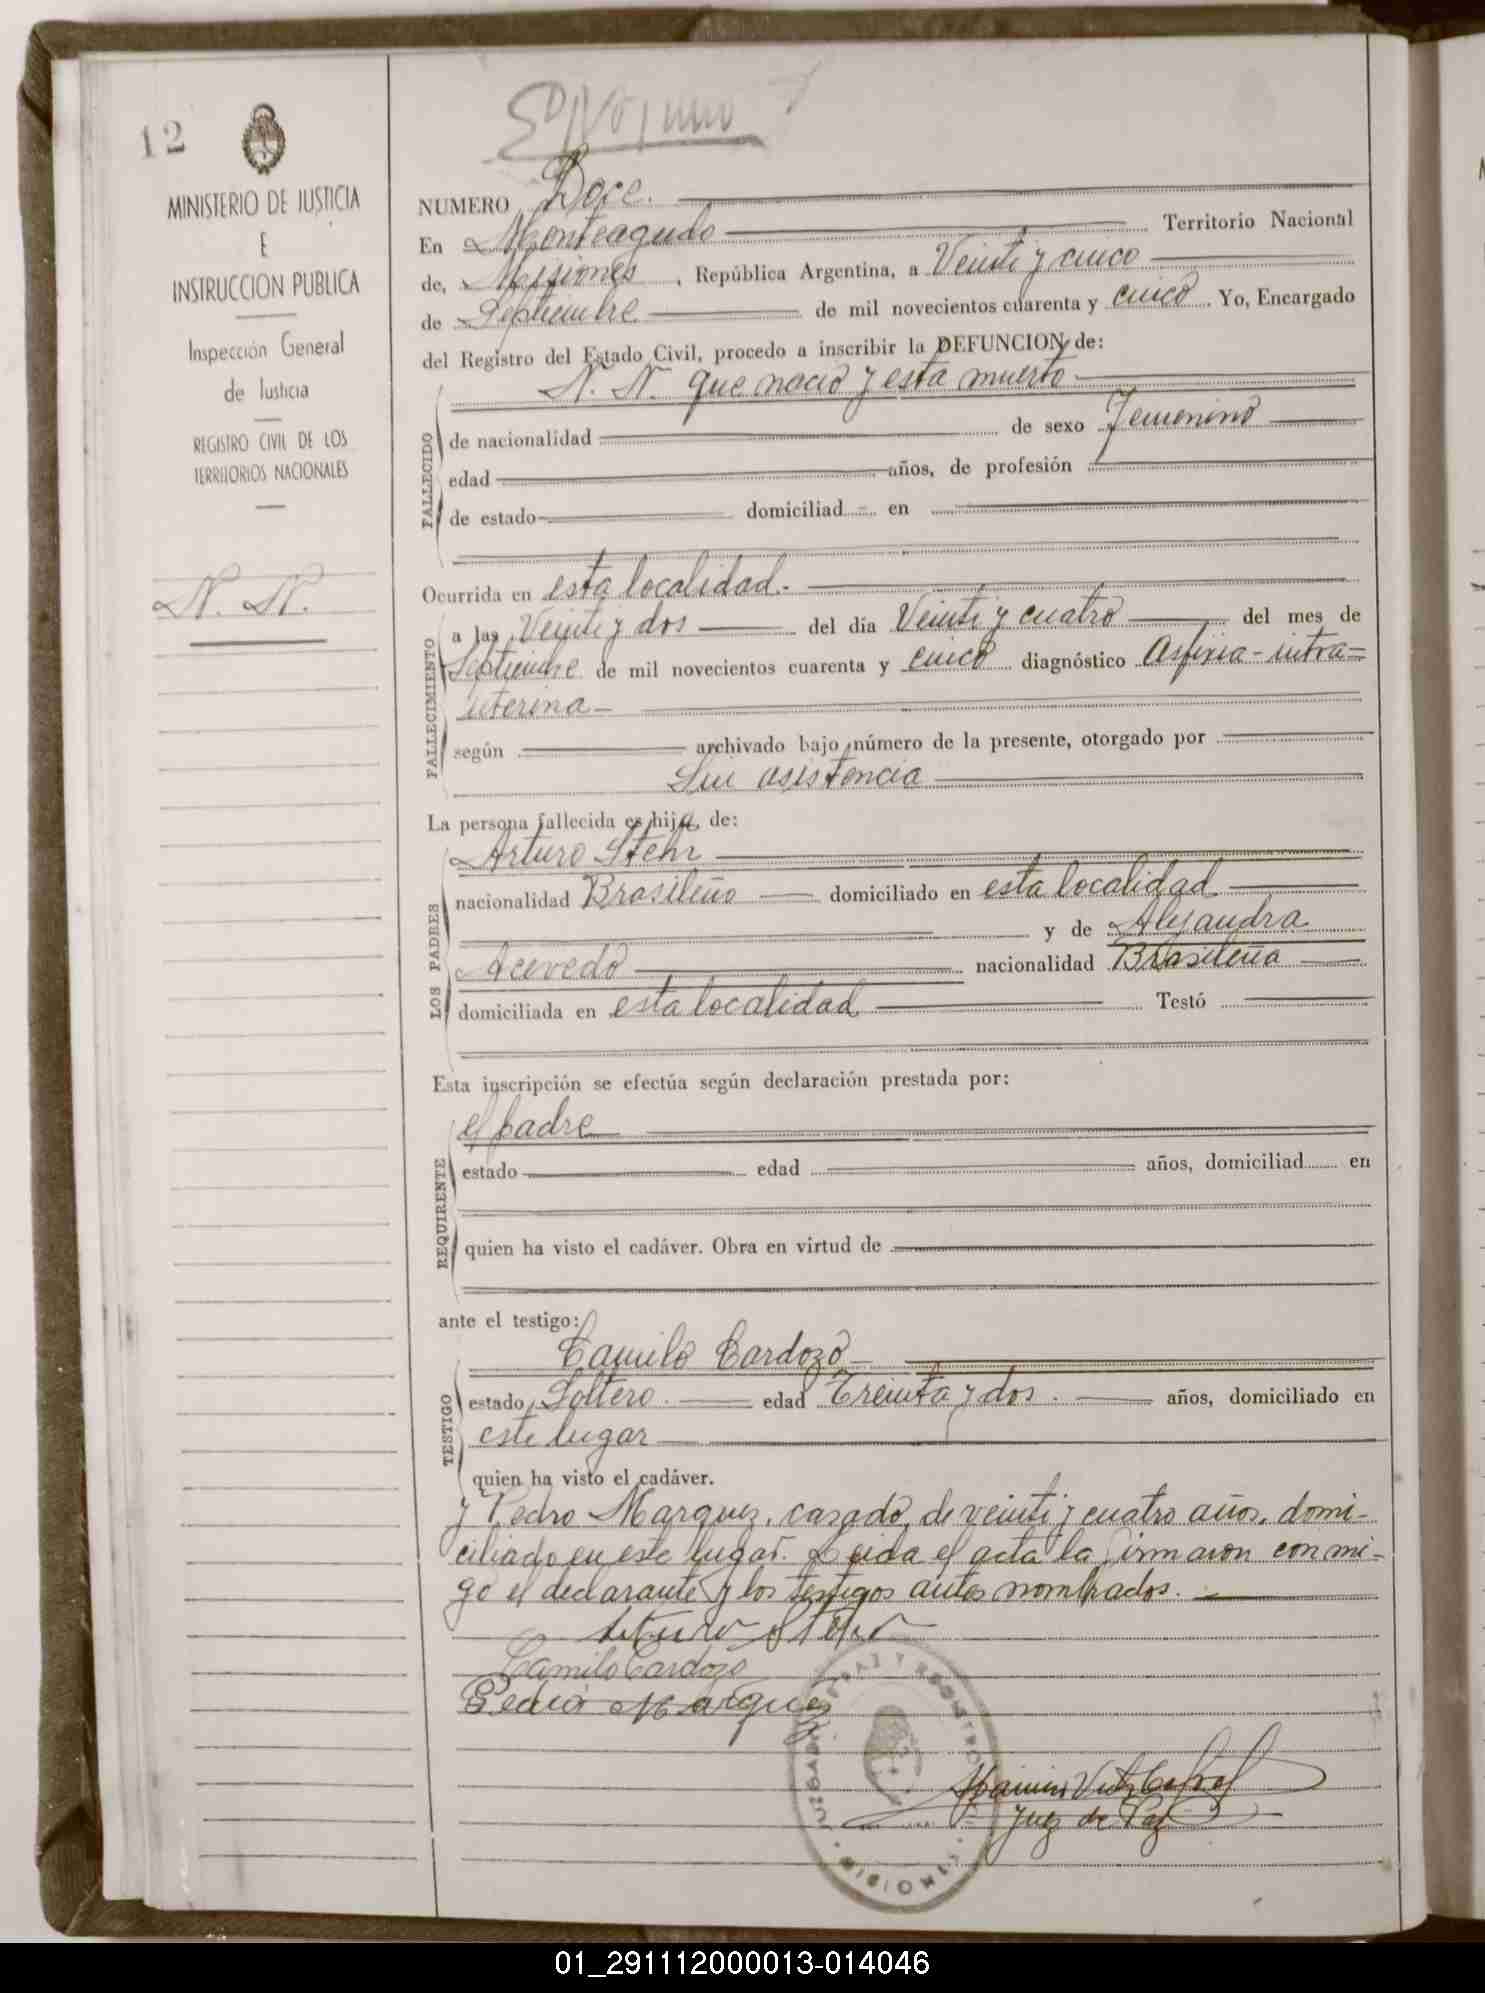 12
MINISTERIO DE JUSTICIA
E
INSTRUCCION PUBLICA
Inspección General
de Justicia
REGISTRO CIVIL DE LOS
TERRITORIOS NACIONALES
N. N.
NUMERO Doce.
En Monteagudo Territorio Nacional
de, Misiones, República Argentina, a Veinti y cinco
de Septiembre de mil novecientos cuarenta y cinco. Yo, Encargado
del Registro del Estado Civil, procedo a inscribir la DEFUNCION de:
N. N. que nació y esta muerto
FALLECIDO
de nacionalidad de sexo Femenino
edad años, de profesión
de estado domiciliad en
Ocurrida en esta localidad.
FALLECIMIENTO
a las Veinti y dos del día Veinti y cuatro del mes de
Septiembre de mil novecientos cuarenta y cinco diagnóstico Asfixia-intra-
uterina
según archivado bajo número de la presente, otorgado por
Sin asistencia
La persona fallecida es hija de:
LOS PADRES
Arturo Stehr
nacionalidad Brasileño domiciliado en esta localidad
y de Alejandra
Acevedo nacionalidad Brasileña
domiciliada en esta localidad Testó
Esta inscripción se efectúa según declaración prestada por:
REQUIRENTE
el padre
estado edad años, domiciliad en
quien ha visto el cadáver. Obra en virtud de
ante el testigo:
TESTIGO
Camilo Cardozo
estado Soltero. edad Treinta y dos. años, domiciliado en
este lugar
quien ha visto el cadáver.
y Pedro Marquez, casado, de veinti y cuatro años, domi-
ciliado en este lugar. Leida el acta la firmaron con mi-
go el declarante y los testigos antes nombrados.
Camilo Cardozo
Pedro Marquez
Juez de Paz
01_291112000013-014046